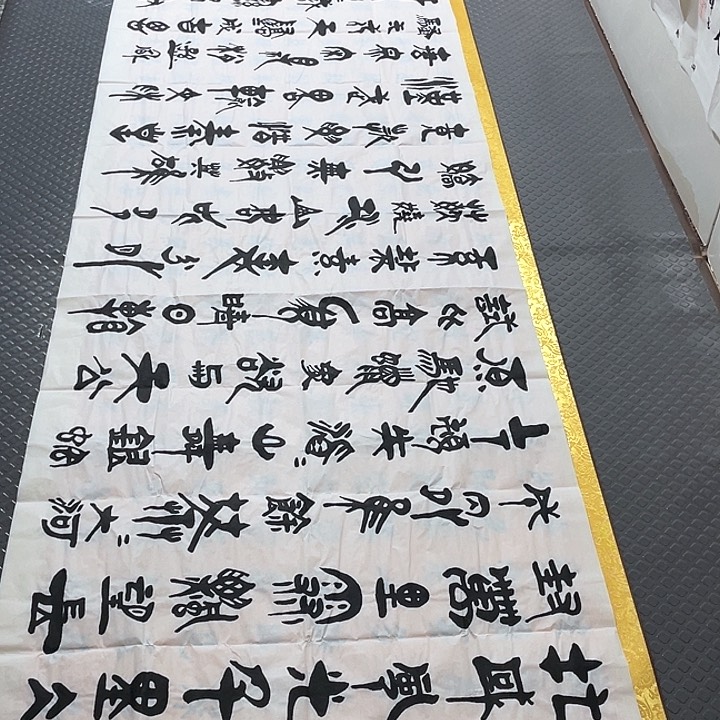 北國風光千里冰
封萬里雪飄望長
城内外惟餘莽〻大河
上下頓失滔〻山舞銀蛇
原馳蠟象欲与天公
試比高須晴日看
紅裝素裹分外
妖嬈江山如此多
嬌引無數英雄
競折腰惜秦皇
漢武略輸文采
唐宗宋祖稍遜風
騷一代天驕成吉思